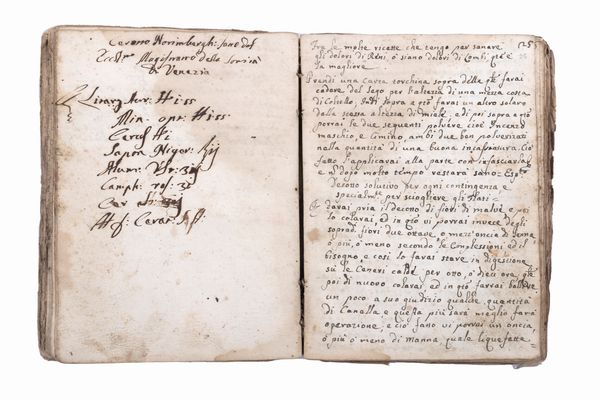 Cerotto Norimbergh: sono del
Ecc.mo Magistrato della Sanità
di Venezia
Litarg. Aur: ℥iss
Min: opt: ℥iss
Ceruss ℥i
Sapon Nigor:
Alum:
Camph:
Cer
Ft: Cerot: S.A.
25
Fra le molte ricette che tengo per sanare
gli dolori di Reni, ò siano dolori di Lombi, qta è
la magliore
Prendi una Carta torchina sopra della qle farai
cadere del Sego per l'altezza di una mezza costa
di Coltello, Indi sopra a qto farai un altro solaro
della stessa altezza di miele, e di poi sopra a qto
porrai le due seguenti polvere cioè Incenzo
maschio, e Cimino ambi due ben polverizati
nella quantità di una buona incassatura. Ciò
fatto l'applicarai alla parte con infasciarla
e n'dopo molto tempo restarà sano
desotto solutivo per ogni contingenza e
specialmte per sciogliere gli Flati
farai pria il decotto di fiori di malve e poi
lo colarai ed in qto vi porrai invece degli
sopradi fiori due ottave, o mezz'oncia di Senna
ò più, ò meno secondo le Complessioni ed il
bisogno, e così lo farai stare in digestione
sù le Ceneri calde per otto, ò dieci ore qle
poi di nuovo colarai, ed in qto farrai bollire
un poco a suo giudizio qualche quantità
di Canella e questa più sarà meglio farà
operazione, e ciò fatto vi porrai un oncia,
ò più ò meno di Manna quale liquefatta